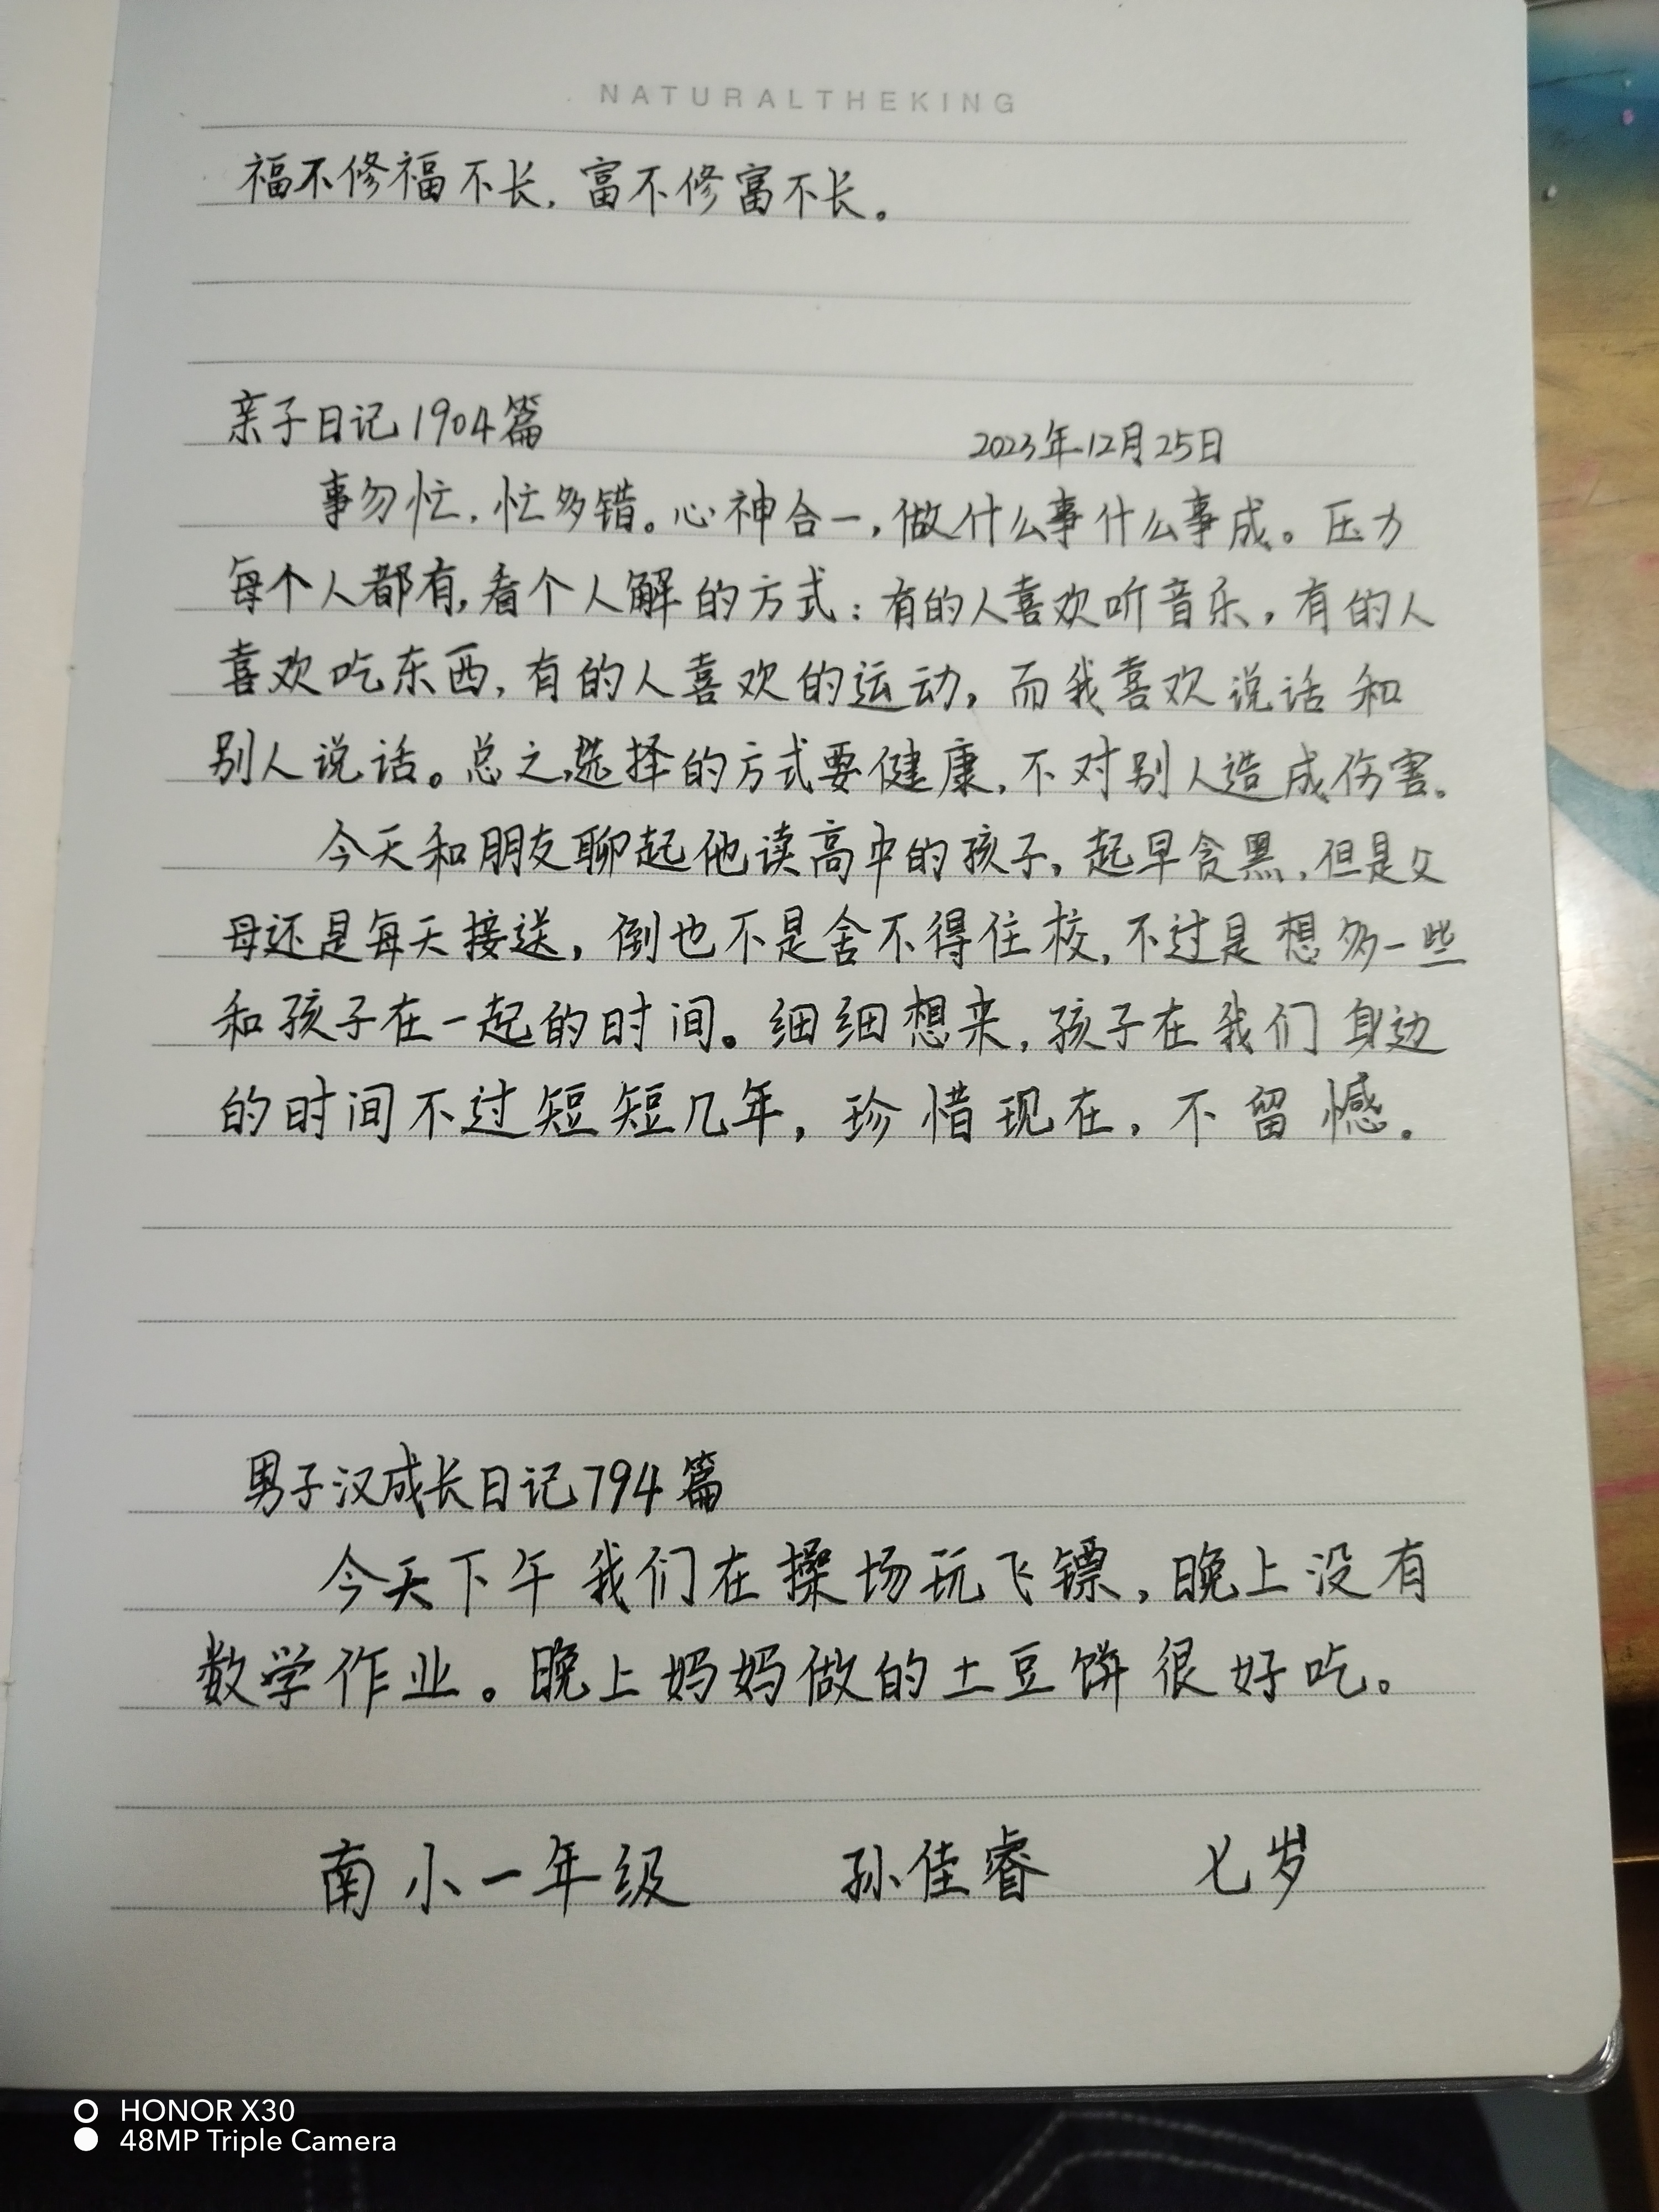 NATURALTHEKING
福不修福不长,富不修富不长。
亲子日记1904篇
2023年12月25日
事勿忙,忙多错。心神合一,做什么事什么事成。压力
每个人都有,看个人解的方式:有的人喜欢听音乐,有的人
喜欢吃东西,有的人喜欢的运动,而我喜欢说话和
别人说话。总之,选择的方式要健康,不对别人造成伤害。
今天和朋友聊起他读高中的孩子,起早贪黑,但是父
母还是每天接送,倒也不是舍不得住校,不过是想多一些
和孩子在一起的时间。细细想来,孩子在我们身边
的时间不过短短几年,珍惜现在,不留憾。
男子汉成长日记794篇
今天下午我们在操场玩飞镖,晚上没有
数学作业。晚上妈妈做的土豆饼很好吃。
南小一年级 孙佳睿 七岁
HONOR X30
48MP Triple Camera